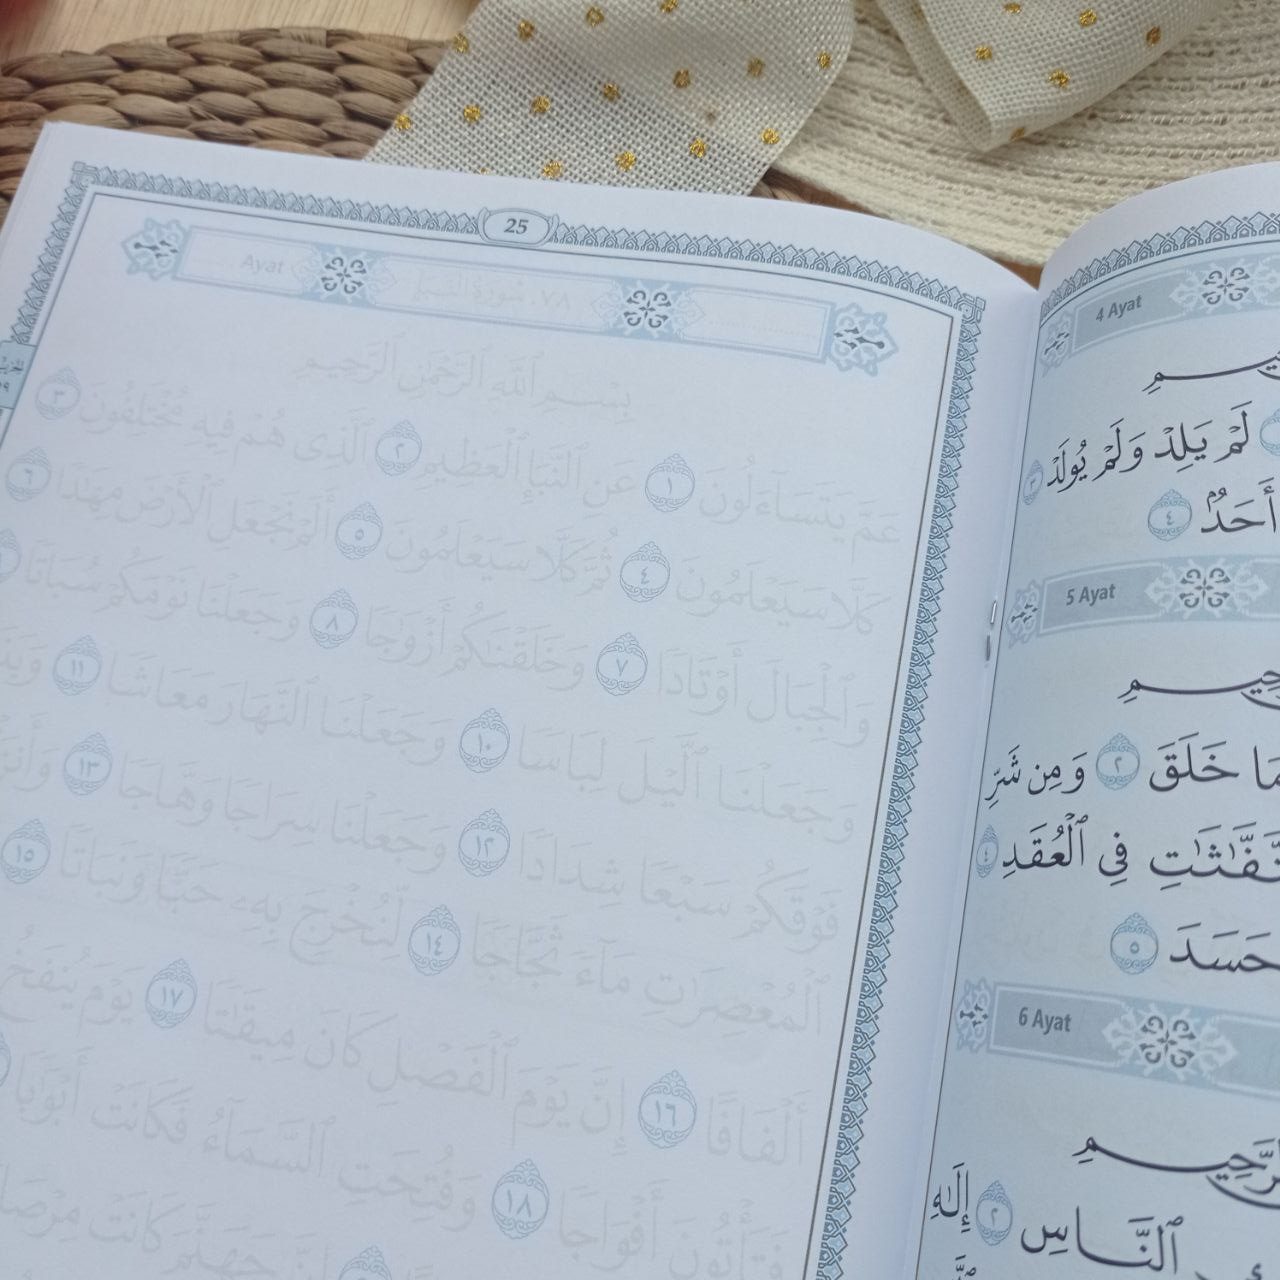 25
Ayat
٧٨. سُورَةُ
بِسْمِ ٱللَّهِ ٱلرَّحْمَٰنِ ٱلرَّحِيمِ
عَمَّ يَتَسَآءَلُونَ ١ عَنِ ٱلنَّبَإِ ٱلْعَظِيمِ ٢ ٱلَّذِى هُمْ فِيهِ مُخْتَلِفُونَ ٣
كَلَّا سَيَعْلَمُونَ ٤ ثُمَّ كَلَّا سَيَعْلَمُونَ ٥ أَلَمْ نَجْعَلِ ٱلْأَرْضَ مِهَٰدًا ٦
وَٱلْجِبَالَ أَوْتَادًا ٧ وَخَلَقْنَٰكُمْ أَزْوَٰجًا ٨ وَجَعَلْنَا نَوْمَكُمْ سُبَاتًا
وَجَعَلْنَا ٱلَّيْلَ لِبَاسًا ١٠ وَجَعَلْنَا ٱلنَّهَارَ مَعَاشًا ١١
فَوْقَكُمْ سَبْعًا شِدَادًا ١٢ وَجَعَلْنَا سِرَاجًا وَهَّاجًا ١٣
ٱلْمُعْصِرَٰتِ مَآءً ثَجَّاجًا ١٤ لِّنُخْرِجَ بِهِۦ حَبًّا وَنَبَاتًا ١٥
أَلْفَافًا ١٦ إِنَّ يَوْمَ ٱلْفَصْلِ كَانَ مِيقَٰتًا ١٧ يَوْمَ يُنفَخُ
فَتَأْتُونَ أَفْوَاجًا ١٨ وَفُتِحَتِ ٱلسَّمَآءُ فَكَانَتْ أَبْوَٰبًا
إِنَّ جَهَنَّمَ كَانَتْ
4 Ayat
لَمْ يَلِدْ وَلَمْ يُولَدْ ٣
أَحَدٌۢ ٤
5 Ayat
مَا خَلَقَ ٢ وَمِن شَرِّ
ٱلْعُقَدِ فِى ٤
حَسَدَ ٥
6 Ayat
ٱلنَّاسِ ٢ إِلَٰهِ